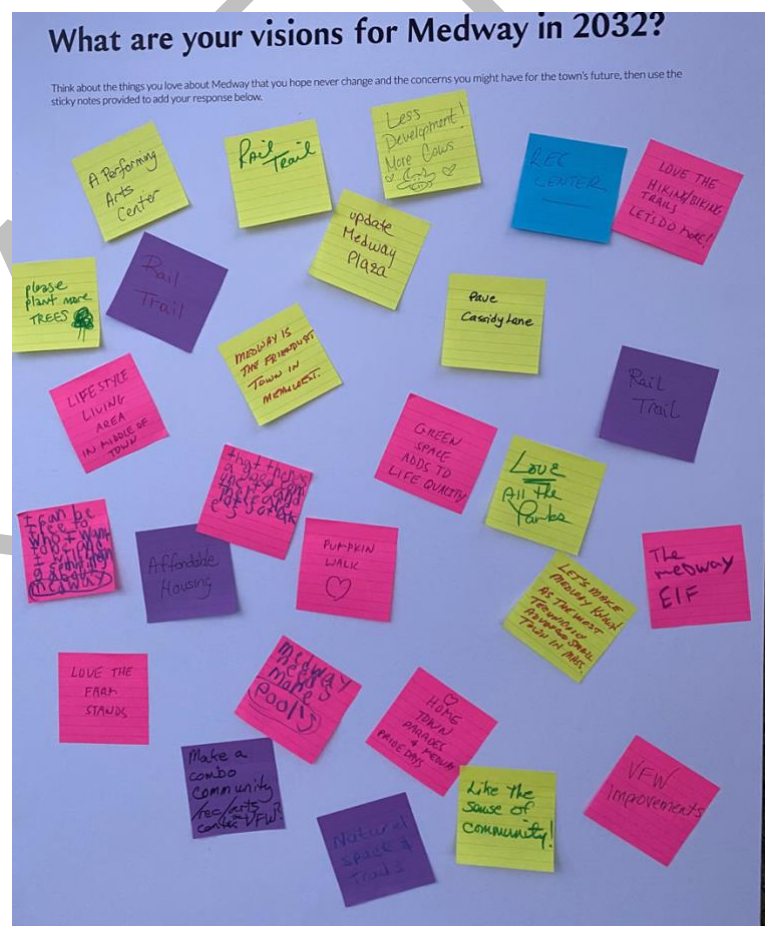 What are your visions for Medway in 2032?
Think about the things you love about Medway that you hope never change and the concerns you might have for the town's future, then use the
sticky notes provided to add your response below.
A Performing
Arts
Center
Rail
Trail
Less
Development!
More Cows
REC
CENTER
LOVE THE
HIKING/BIKING
TRAILS
LETS DO MORE!
please
plant more
TREES
Rail
Trail
update
Medway
Plaza
MEDWAY IS
THE FRIENDLIEST
TOWN IN
Pave
Cassidy Lane
Rail
Trail
LIFESTYLE
LIVING
AREA
IN MIDDLE OF
TOWN
GREEN
SPACE
ADDS TO
LIFE QUALITY
Love
All the
Parks
that theres
I can be
free to
medway
Affordable
Housing
PUMPKIN
WALK
LET'S MAKE
MEDWAY KNOWN
AS THE MOST
ADVANCED SMALL
TOWN IN MASS.
The
medway
ElF
LOVE THE
FARM
STANDS
medway
needs
more
pools
HOME
TOWN
PARADES
& MEDWAY
PRIDE DAYS
Make a
combo
community
/rec/arts
center - VFW?
Natural
space &
Trails
Like the
sense of
community!
VFW
Improvements